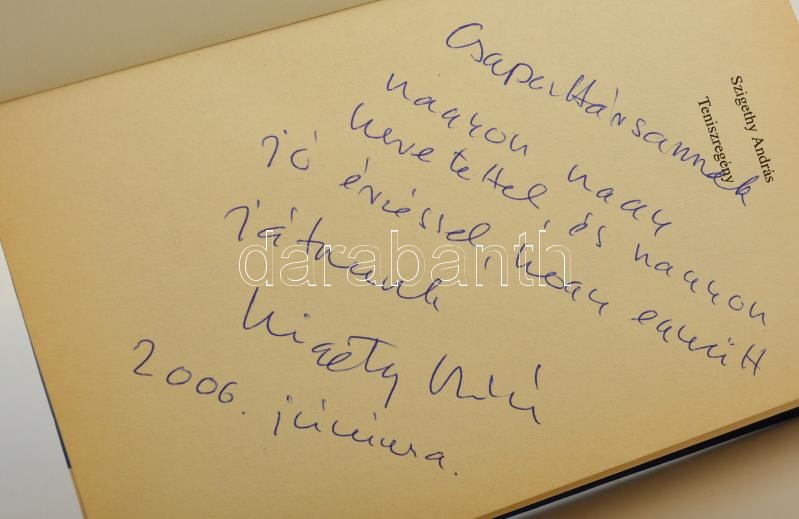 Szigethy András
Teniszregény
Csapattársamnak
nagyon nagy
szeretettel, és nagyon
jó érzéssel, hogy együtt
játszunk
2006. június
darabanth